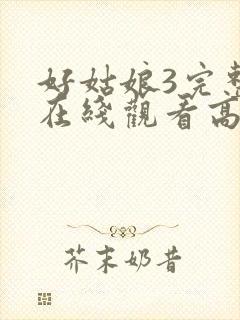 好姑娘3完整
在綫觀看高
芥末奶昔